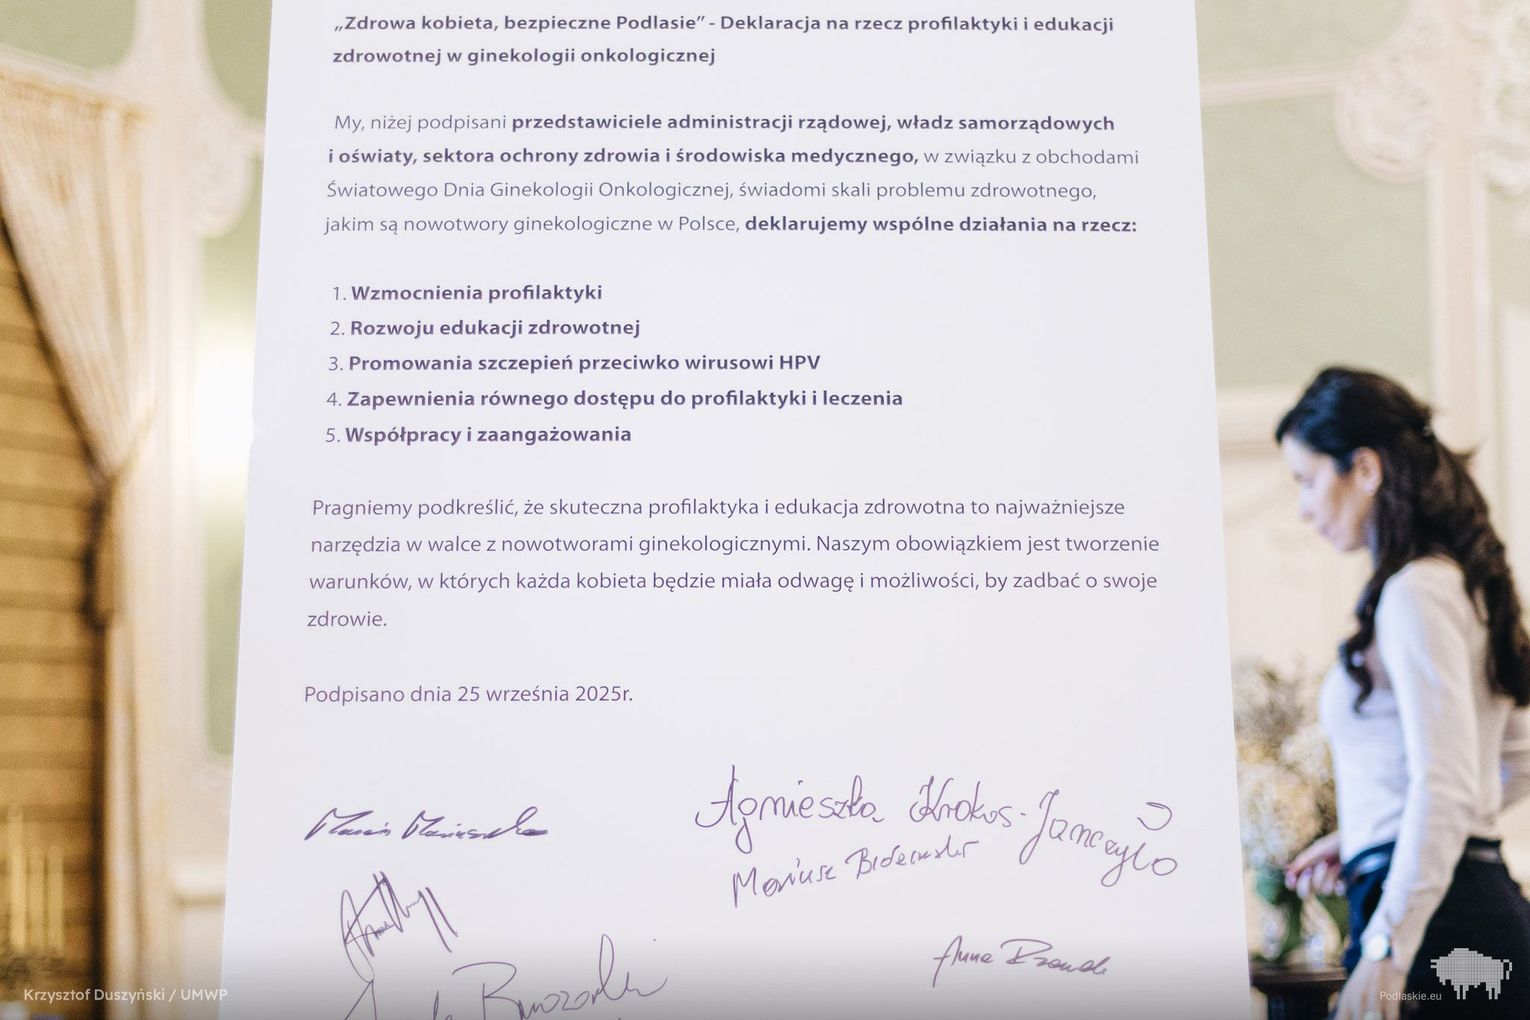 „Zdrowa kobieta, bezpieczne Podlasie” - Deklaracja na rzecz profilaktyki i edukacji
zdrowotnej w ginekologii onkologicznej
My, niżej podpisani przedstawiciele administracji rządowej, władz samorządowych
i oświaty, sektora ochrony zdrowia i środowiska medycznego, w związku z obchodami
Światowego Dnia Ginekologii Onkologicznej, świadomi skali problemu zdrowotnego,
jakim są nowotwory ginekologiczne w Polsce, deklarujemy wspólne działania na rzecz:
1. Wzmocnienia profilaktyki
2. Rozwoju edukacji zdrowotnej
3. Promowania szczepień przeciwko wirusowi HPV
4. Zapewnienia równego dostępu do profilaktyki i leczenia
5. Współpracy i zaangażowania
Pragniemy podkreślić, że skuteczna profilaktyka i edukacja zdrowotna to najważniejsze
narzędzia w walce z nowotworami ginekologicznymi. Naszym obowiązkiem jest tworzenie
warunków, w których każda kobieta będzie miała odwagę i możliwości, by zadbać o swoje
zdrowie.
Podpisano dnia 25 września 2025r.
Agnieszka Krokos-Janczyło
Mariusz
Anna
Krzysztof Duszyński / UMWP
Podlaskie.eu